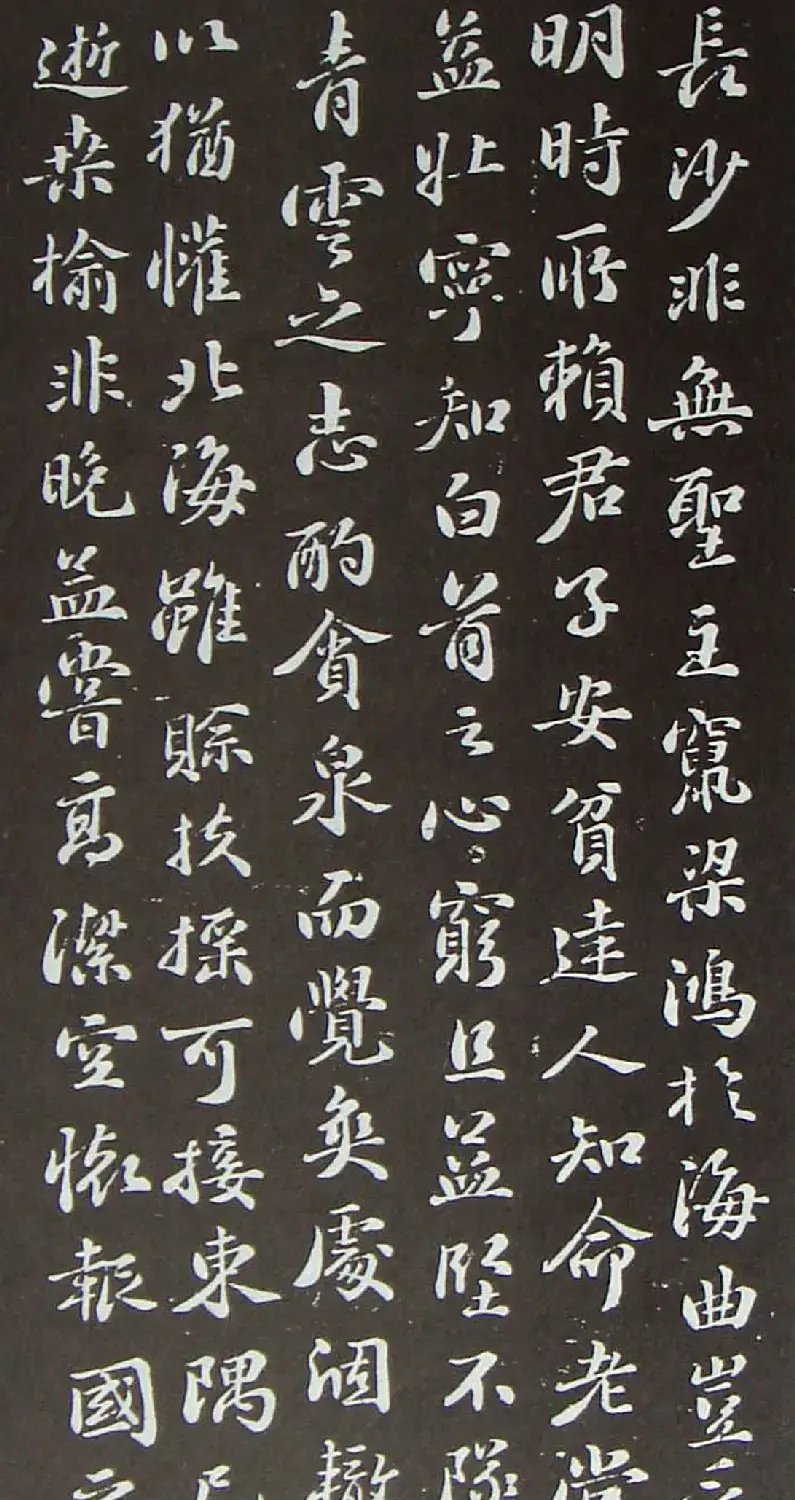 長沙非無聖主竄梁鴻於海曲豈
明時所賴君子安貧達人知命老當
益壯寧知白首之心窮且益堅不
青雲之志酌貪泉而覺爽處涸轍
以猶懽北海雖賒扶搖可接東隅已
逝桑榆非晚孟嘗高潔空懷報國